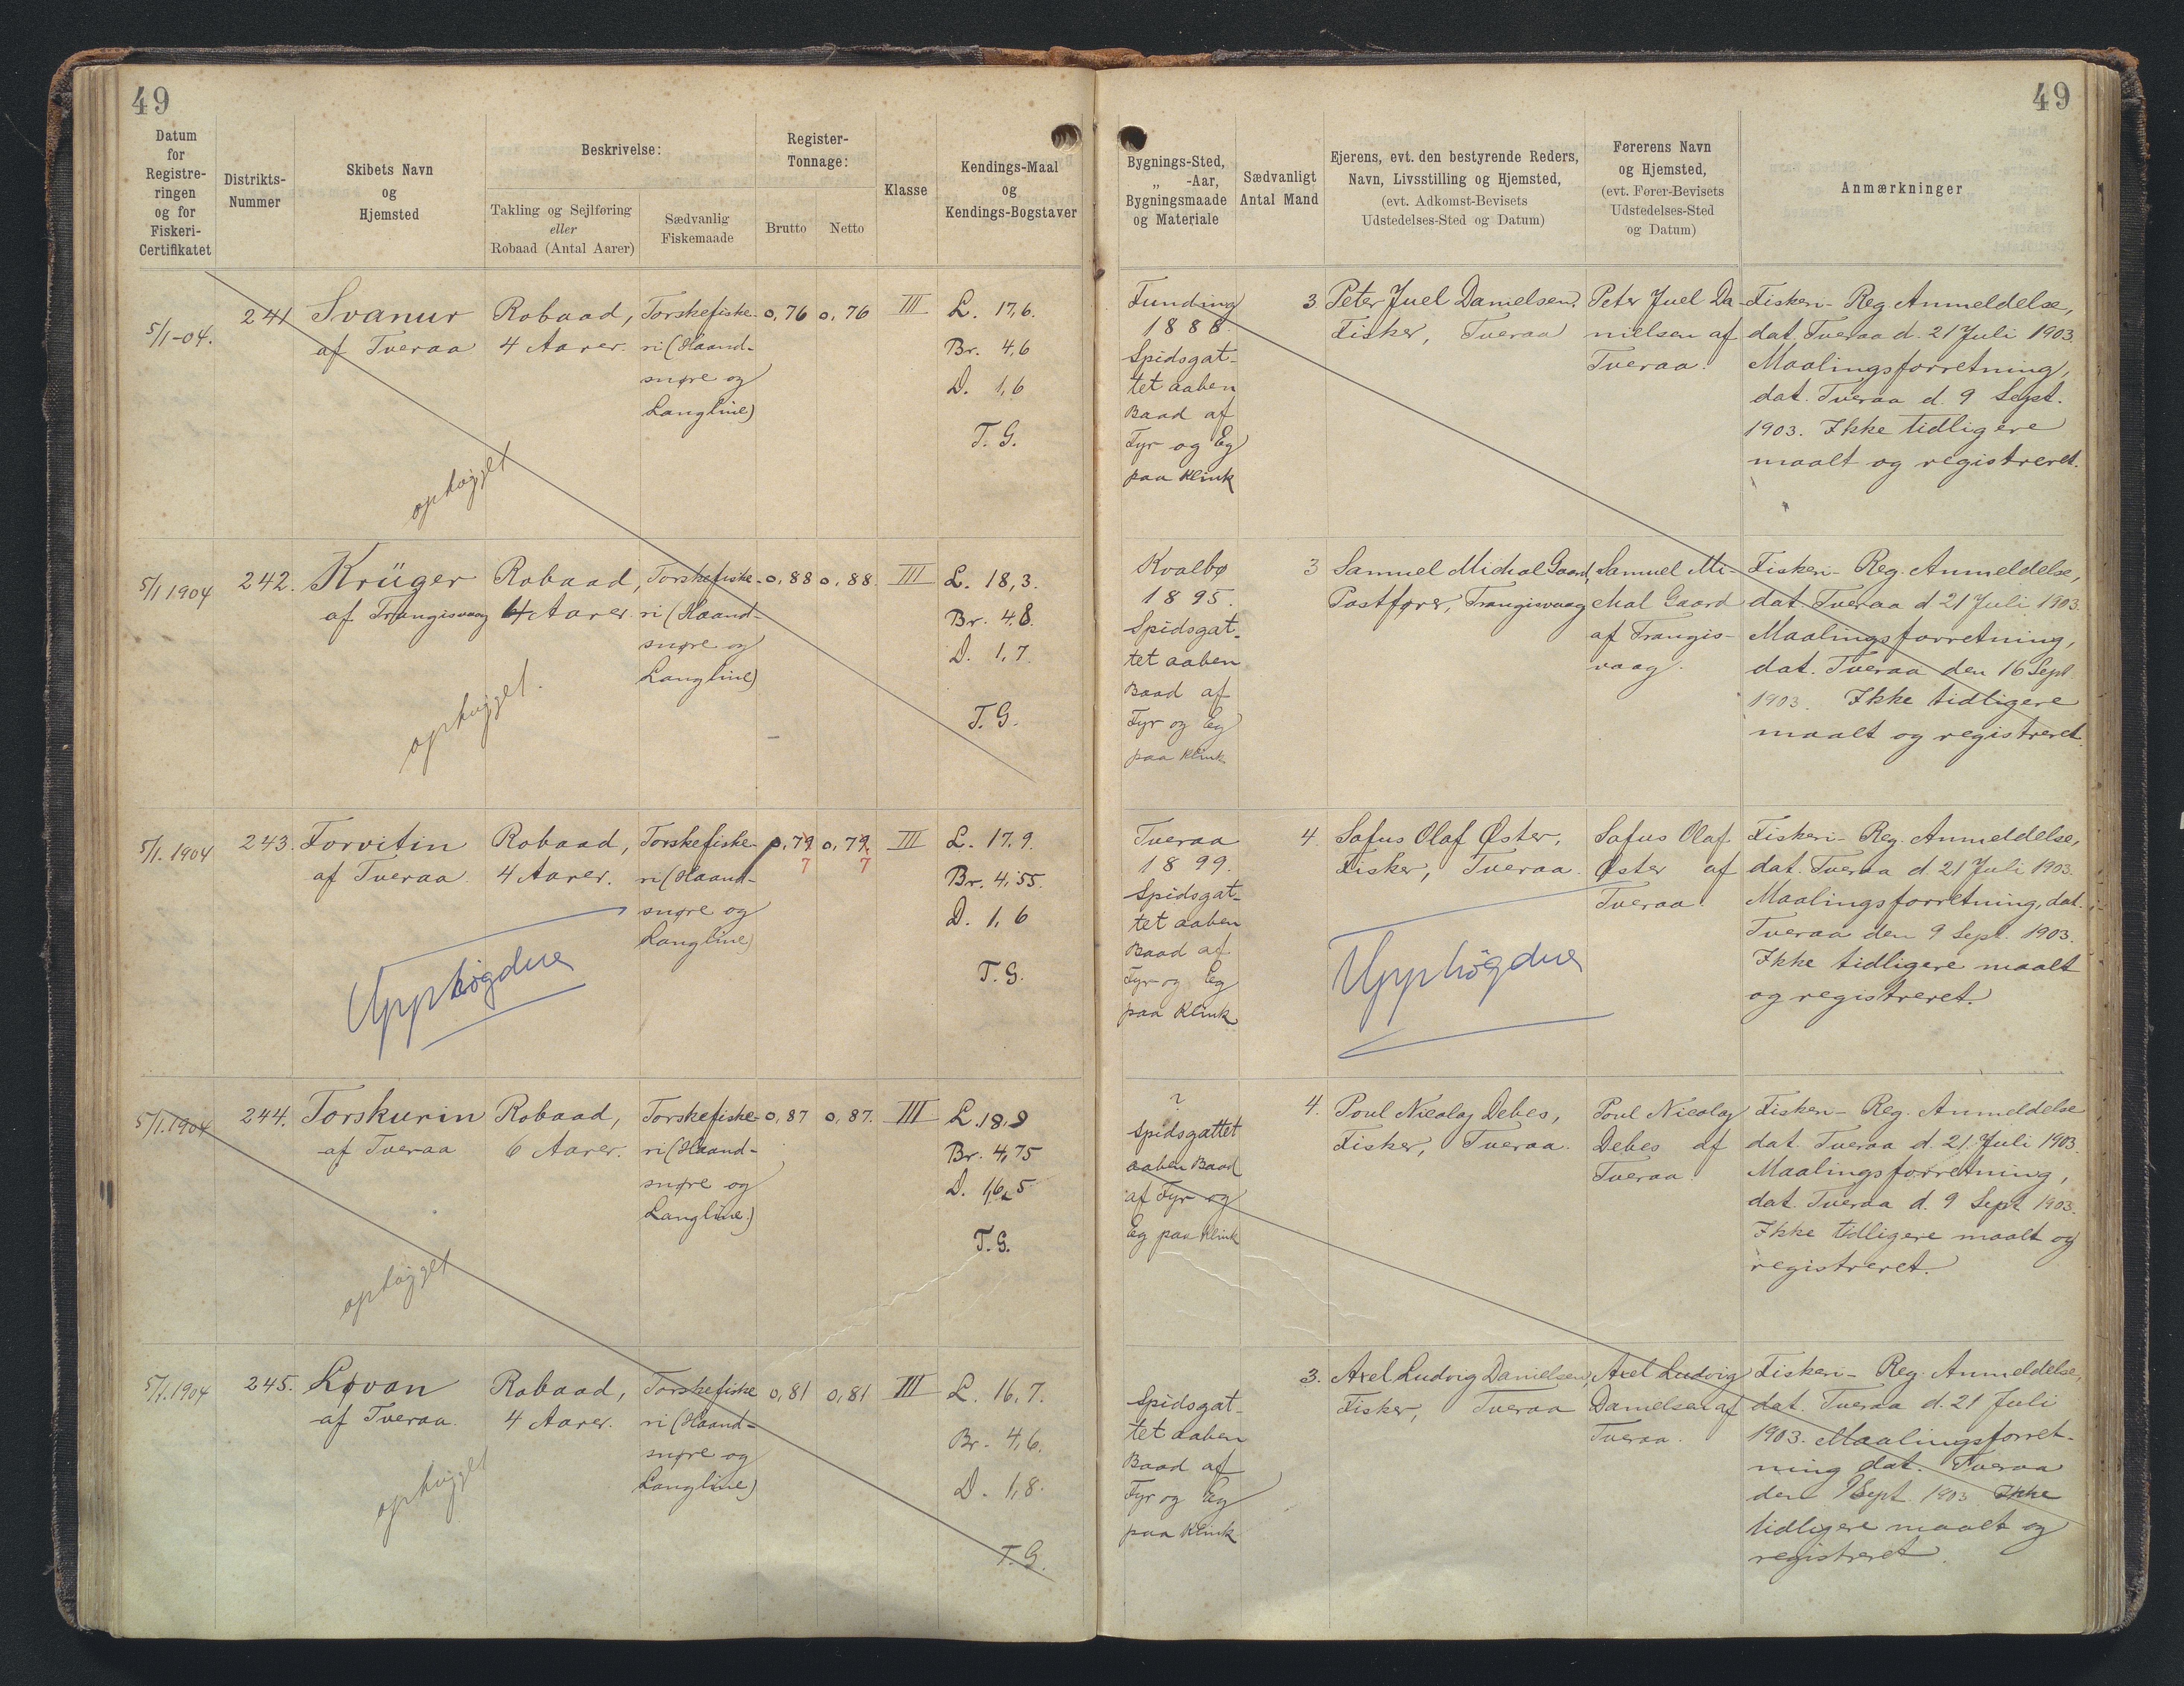 49
49
Datum
for
Registre-
ringen
og for
Fiskeri-
Certifikatet
Distrikts-
Nummer
Skibets Navn
og
Hjemsted
Beskrivelse:
Takling og Sejlføring
eller
Robaad (Antal Aarer)
Sædvanlig
Fiskemaade
Register-
Tonnage:
Brutto
Netto
Klasse
Kendings-Maal
og
Kendings-Bogstaver
Bygnings-Sted,
„ -Aar,
Bygningsmaade
og Materiale
Sædvanligt
Antal Mand
Ejerens, evt. den bestyrende Reders,
Navn, Livsstilling og Hjemsted,
(evt. Adkomst-Bevisets
Udstedelses-Sted og Datum)
Førerens Navn
og Hjemsted,
(evt. Fører-Bevisets
Udstedelses-Sted
og Datum)
Anmærkninger
5/1-04.
241
Svanur
af Tveraa
Robaad,
4 Aarer.
Torskefiske-
ri (Haand-
snøre og
Langline)
0,76
0,76
III
L. 17,6.
Br. 4,6
D. 1,6
T. G.
ophøjget
Funding
1888.
Spidsgat-
tet aaben
Baad af
Fyr og Eg
paa Klink
3
Peter Juel Danielsen.
Fisker, Tveraa
Peter Juel Da-
nielsen af
Tveraa.
Fiskeri-Reg Anmeldelse,
dat. Tveraa d. 21 Juli 1903.
Maalingsforretning,
dat. Tveraa d. 9 Sept.
1903. Ikke tidligere
maalt og registreret.
5/1 1904
242.
Krüger
af Trangisvaag
Robaad,
4 Aarer.
Torskefiske-
ri (Haand-
snøre og
Langline)
0,88
0,88.
III
L. 18,3.
Br. 4,8.
D. 1,7.
T. G.
ophøjget.
Kvalbø
1895.
Spidsgat-
tet aaben
Baad af
Fyr og Eg
paa Klink
3
Samuel Michal Gaard,
Postfører, Trangisvaag
Samuel Mi-
chal Gaard
af Trangis-
vaag.
Fiskeri-Reg. Anmeldelse,
dat Tveraa d 21 Juli 1903.
Maalingsforretning,
dat. Tveraa den 16 Sept
1903. Ikke tidligere
maalt og registreret.
5/1. 1904
243.
Forvitin
af Tveraa.
Robaad,
4 Aarer.
Torskefiske-
ri (Haand-
snøre og
Langline)
0,79
7
0,79.
7
III
L. 17,9.
Br. 4,55.
D. 1,6
T. G.
Upphøgdur
Tveraa
1899.
Spidsgat-
tet aaben
Baad af
Fyr og Eg
paa Klink
4.
Sofus Olaf Øster,
Fisker, Tveraa.
Upphøgdur
Sofus Olaf
Øster af
Tveraa.
Fiskeri-Reg. Anmeldelse,
dat. Tveraa d. 21 Juli 1903.
Maalingsforretning, dat.
Tveraa den 9 Sept. 1903.
Ikke tidligere maalt
og registreret.
5/1.1904
244.
Torskurin
af Tveraa
Robaad,
6 Aarer.
Torskefiske-
ri (Haand-
snøre og
Langline.)
0,87
0,87.
III
L. 18,9
Br. 4,75
D. 1,65
T. G.
ophøjget
?
Spidsgattet
aaben Baad
af Fyr og
Eg paa Klink
4.
Poul Nicolaj Debes,
Fisker, Tveraa.
Poul Nicolaj
Debes af
Tveraa.
Fiskeri-Reg. Anmeldelse
dat. Tveraa d. 21 Juli 1903.
Maalingsforretning,
dat. Tveraa d. 9 Sept 1903.
Ikke tidligere maalt og
registreret.
5/1.1904
245.
Løvan
af Tveraa.
Robaad,
4 Aarer.
Torskefiske
ri (Haand-
snøre og
Langline)
0,81
0,81
III
L. 16,7.
Br. 4,6.
D. 1,8.
T. G.
ophøjget
Spidsgat-
tet aaben
Baad af
Fyr og Eg
paa Klink
3.
Axel Ludvig Danielsen,
Fisker, Tveraa
Axel Ludvig
Danielsen af
Tveraa.
Fiskeri-Reg. Anmeldelse,
dat. Tveraa d. 21 Juli
1903. Maalingsforret-
ning dat. Tveraa
den 9 Sept. 1903. Ikke
tidligere maalt og
registreret.